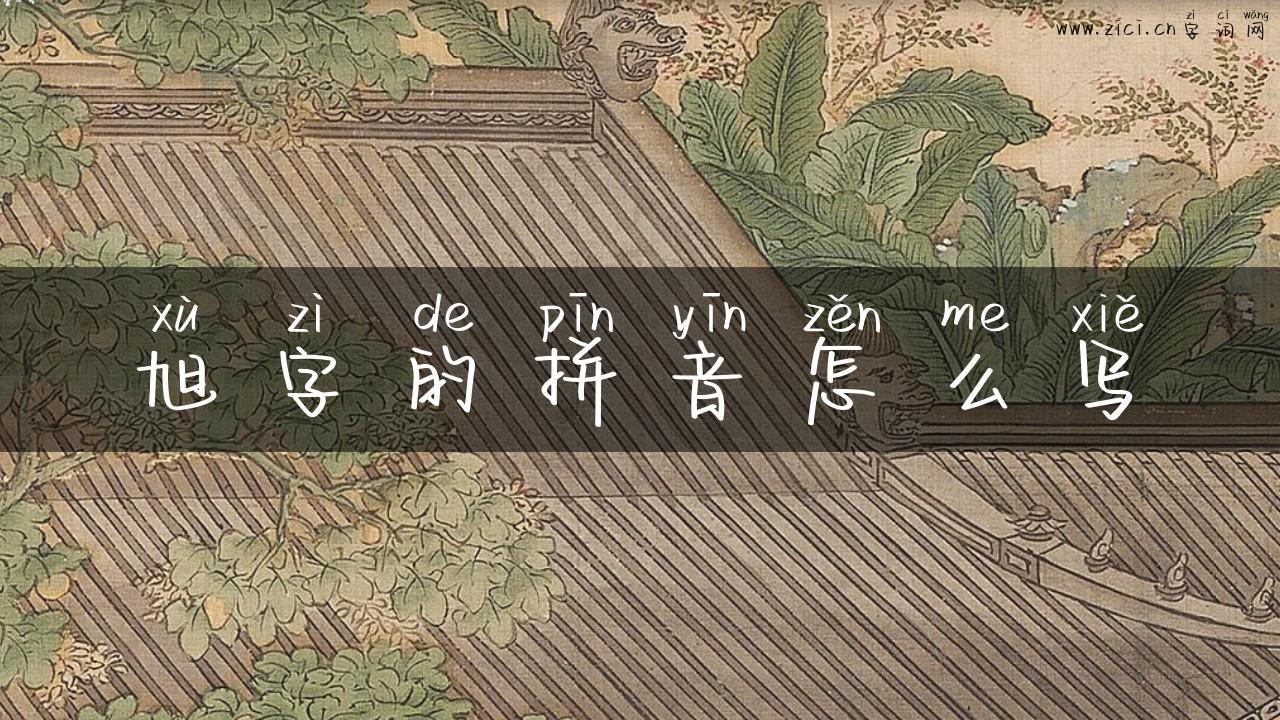 zì cí wǎng
www.zici.cn 字 词 网
xù zì de pīn yīn zěn me xiě
旭 字 的 拼 音 怎 么 写